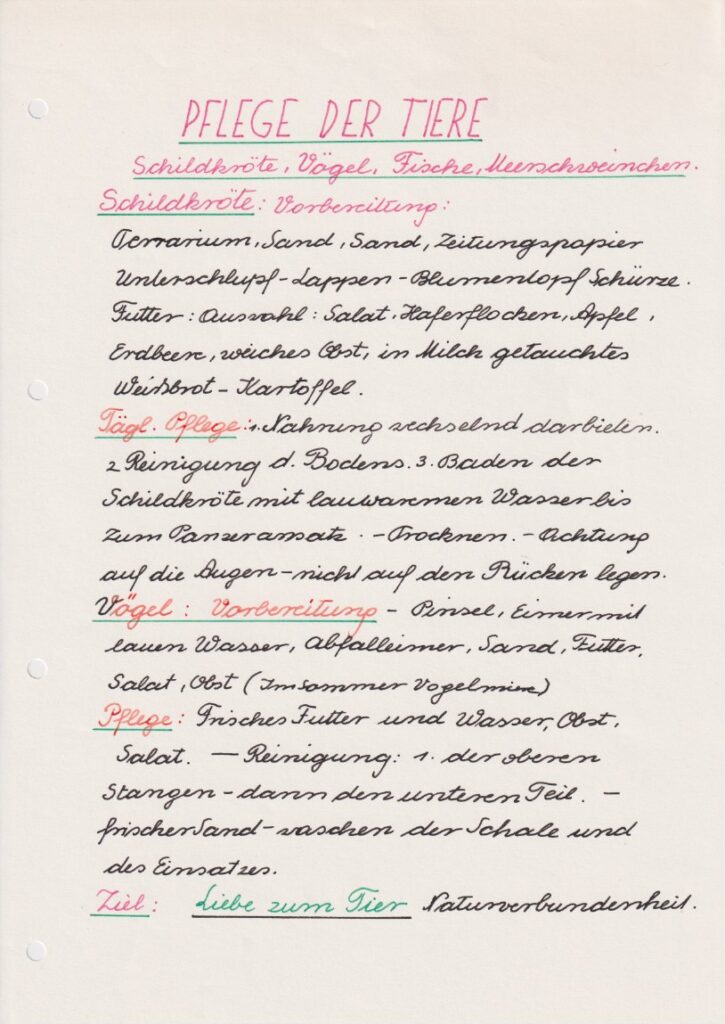 PFLEGE DER TIERE
Schildkröte, Vögel, Fische, Meerschweinchen.
Schildkröte: Vorbereitung:
Terrarium, Sand, Sand, Zeitungspapier
Unterschlupf - Lappen - Blumentopf Schürze.
Futter: Auswahl: Salat, Haferflocken, Apfel,
Erdbeere, weiches Obst, in Milch getauchtes
Weißbrot - Kartoffel.
Tägl. Pflege: 1. Nahrung wechselnd darbieten.
2 Reinigung d. Bodens. 3. Baden der
Schildkröte mit lauwarmen Wasser bis
zum Panzeransatz. - Trocknen. - Achtung
auf die Augen - nicht auf den Rücken legen.
Vögel: Vorbereitung - Pinsel, Eimer mit
lauen Wasser, Abfalleimer, Sand, Futter,
Salat, Obst (Im Sommer Vogelmiere)
Pflege: Frisches Futter und Wasser, Obst,
Salat. — Reinigung: 1. der oberen
Stangen - dann den unteren Teil. -
frischer Sand - waschen der Schale und
des Einsatzes.
Ziel: Liebe zum Tier Naturverbundenheit.